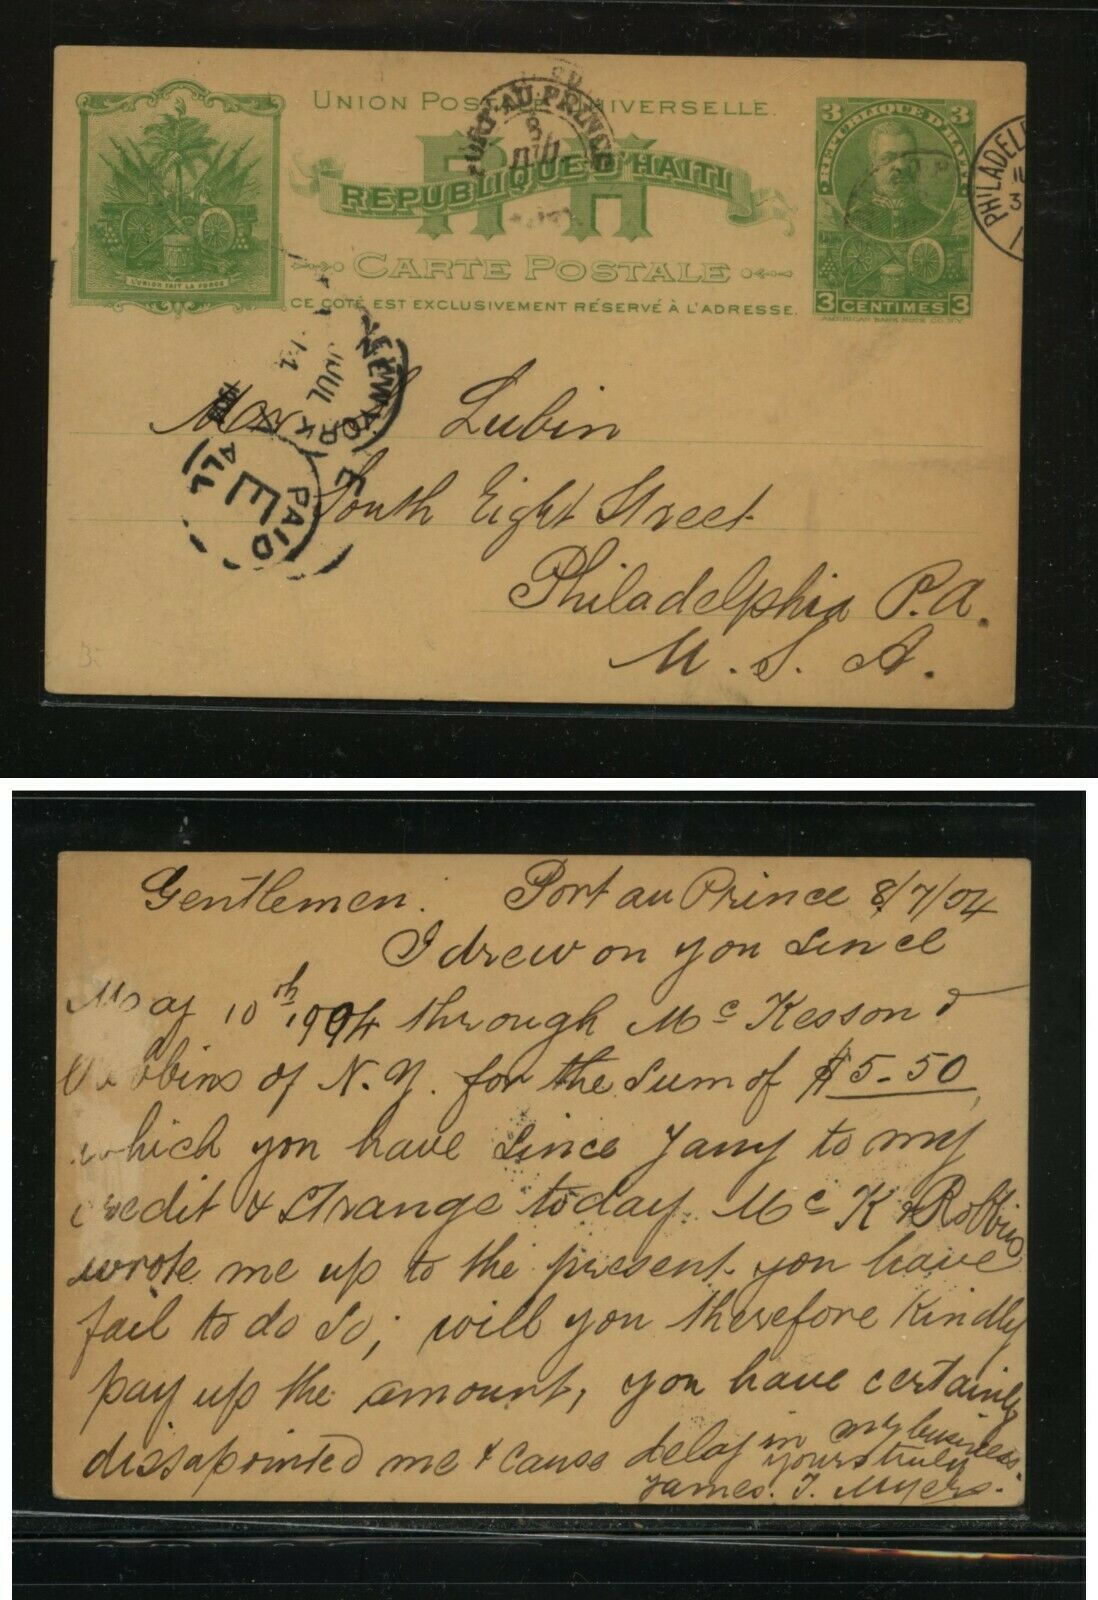 UNION POSTALE UNIVERSELLE.
3 3
REPUBLIQUE D'HAITI
PORT-AU-PRINCE
8
PHILADEL
3
1
RH
REPUBLIQUE D'HAITI
L'UNION FAIT LA FORCE
CARTE POSTALE
3 CENTIMES 3
AMERICAN BANK NOTE CO. N.Y.
CE COTÉ EST EXCLUSIVEMENT RÉSERVÉ À L'ADRESSE.
NEW YORK
JUL
PAID
E
ALL
Lubin
South Eight Street
Philadelphia P.A.
U. S. A.
Gentlemen: Port au Prince 8/7/04
I drew on you since
May 10th 1904 through McKesson &
Robbins of N.Y. for the sum of $5-50,
which you have since Jany to my
credit & strange today. McK & Robbins
wrote me up to the present you have
fail to do so; will you therefore kindly
pay up the amount, you have certainly
dissapointed me & cause delay in my business.
yours truly
James. T. Myers.